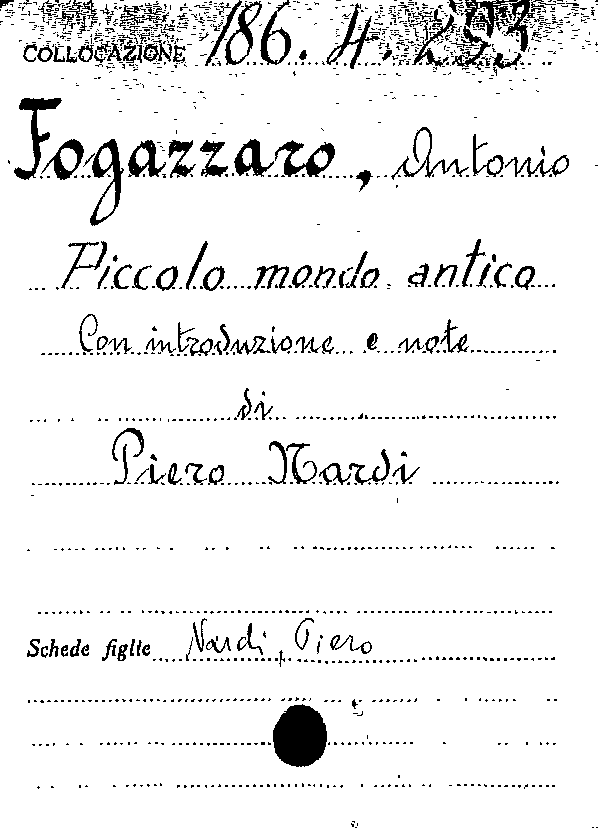 COLLOCAZIONE 186. 4. 253
Fogazzaro, Antonio
Piccolo mondo antico
Con introduzione e note
di
Piero Nardi
Schede figlie Nardi, Piero